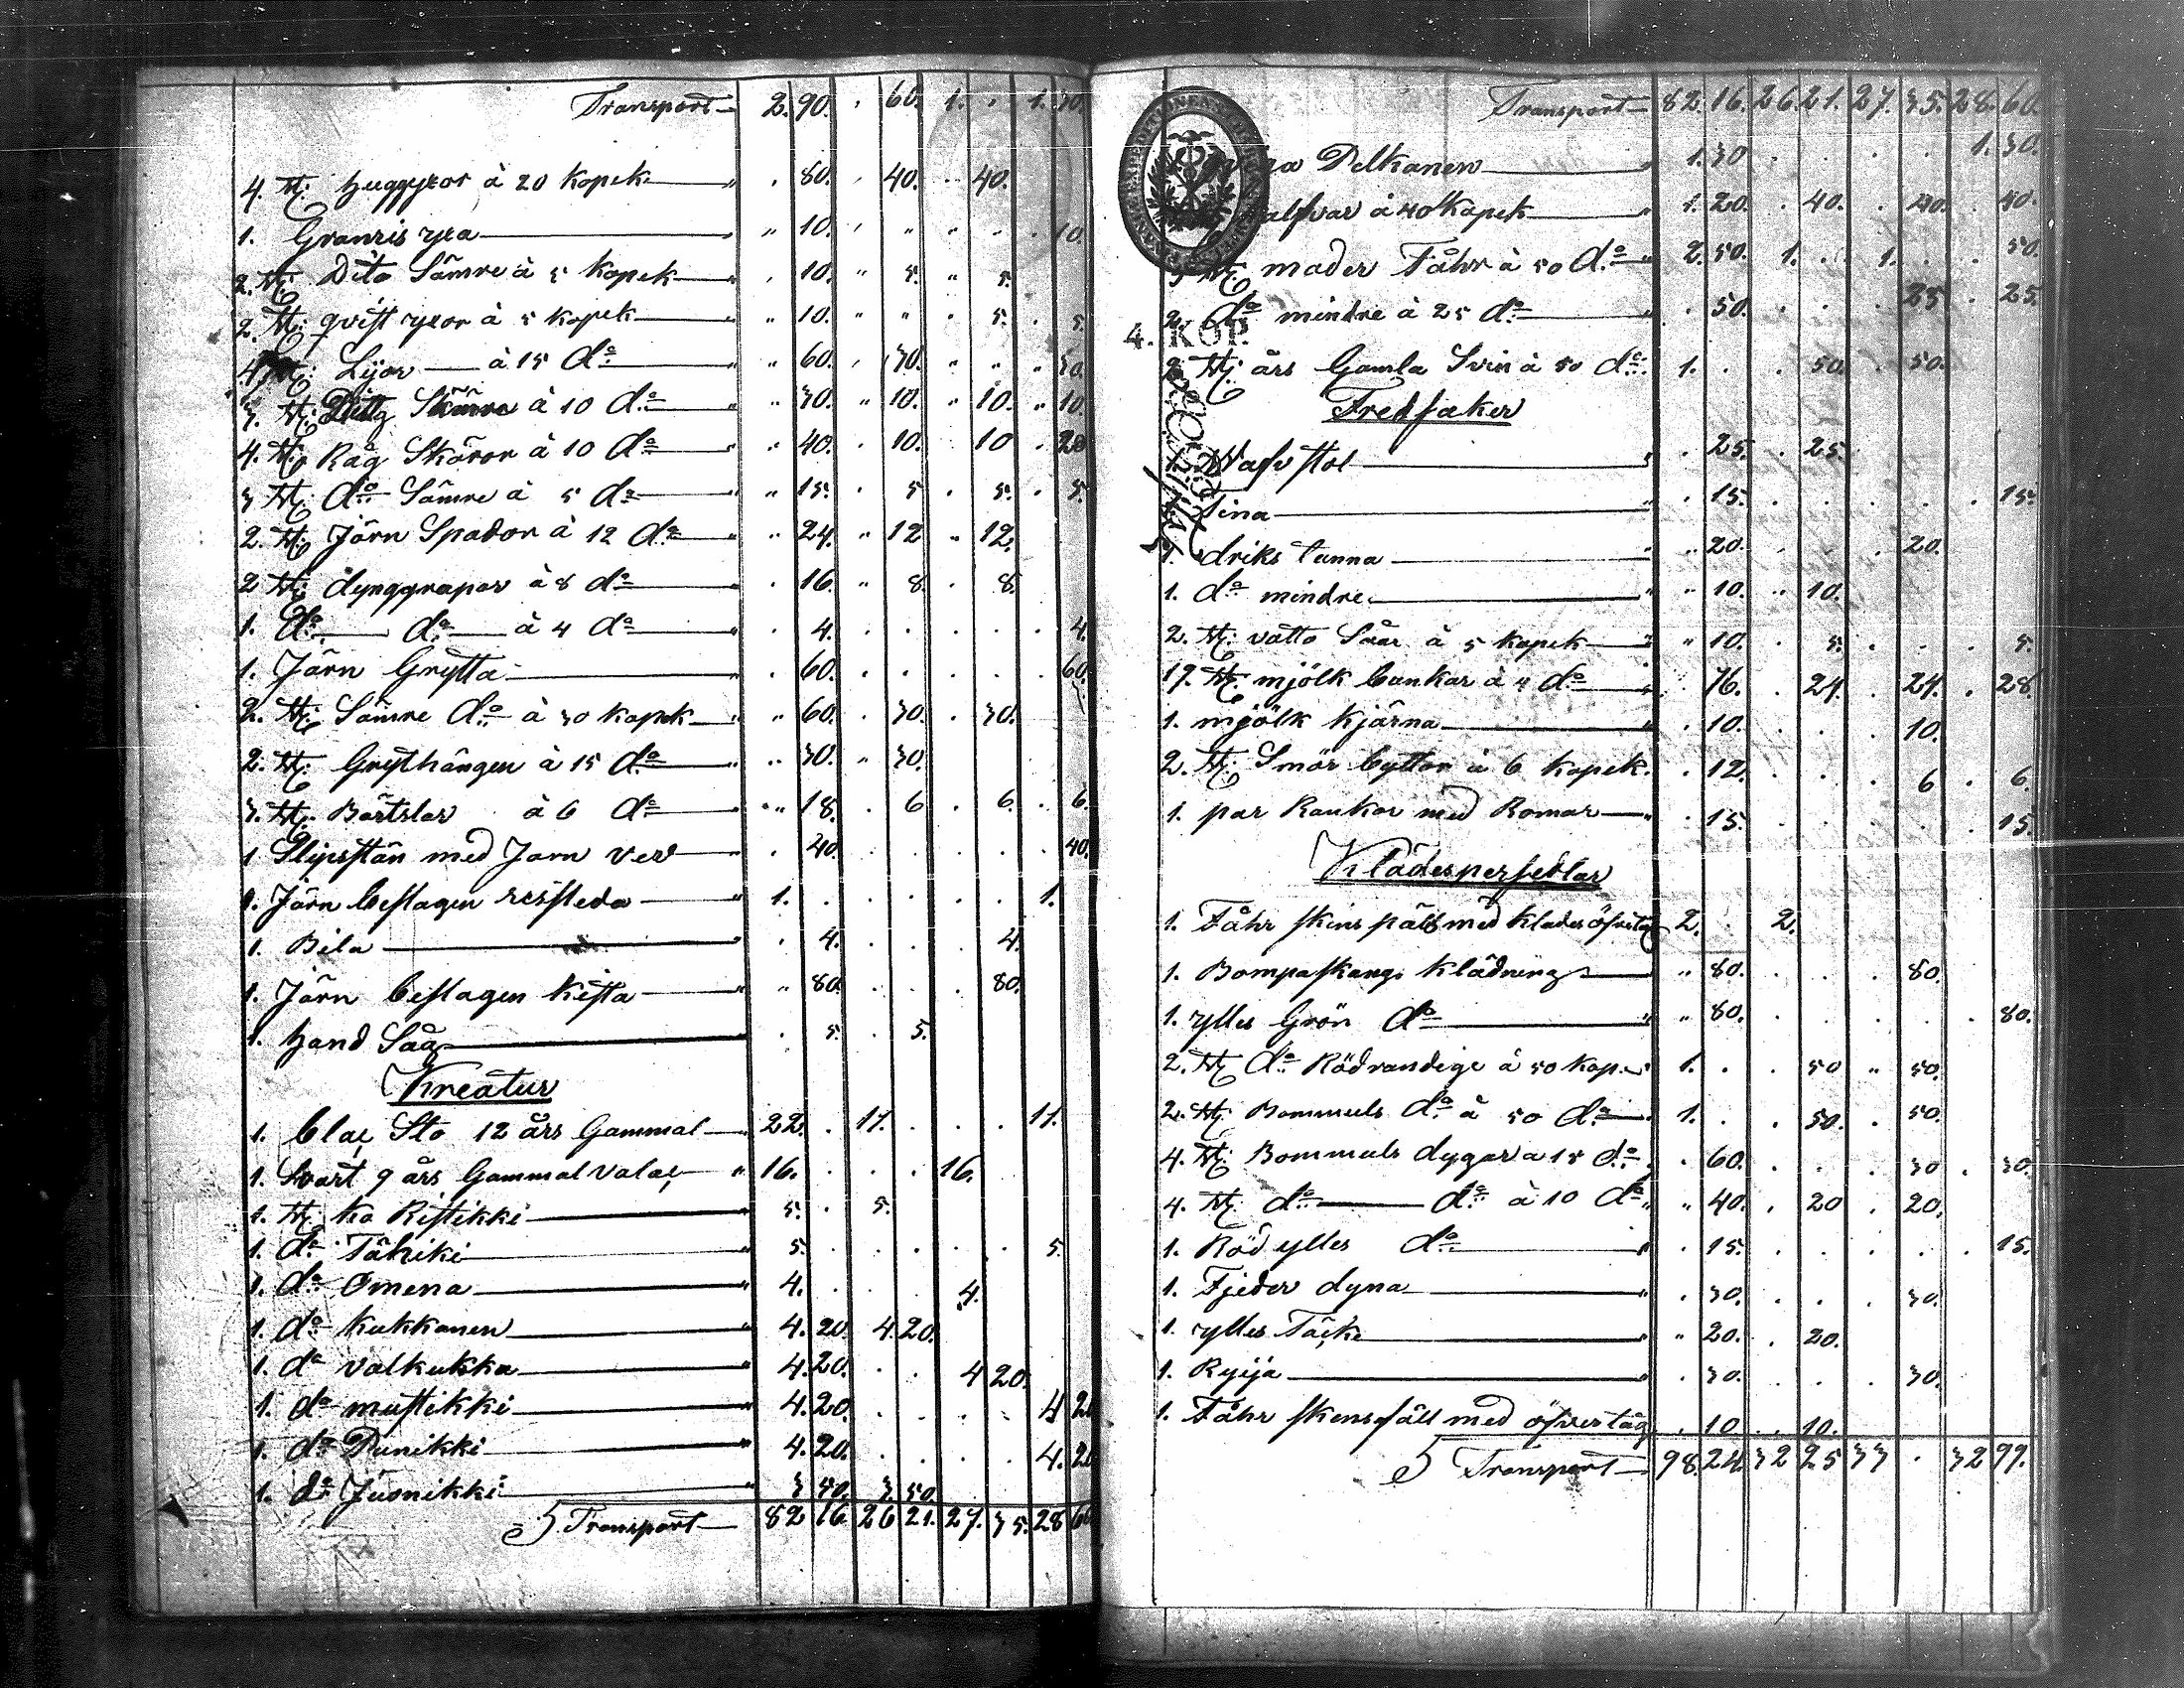 Transport 2. 90. . 60. 1. . 1. 30.
4. st: huggyxor à 20 Kopek " . 80. . 40. . 40.
1. Granris yxa " " 10. " " " . . 10
2. st: Dito Sämre à 5 Kopek " . 10. " 5. " 5.
2. st: qvist yxor à 5 Kopek " " 10. " " . 5. . 5.
4 st: Lijor à 15 do " 60. . 30. " " . 30.
3. st: Ditto Sämre à 10 do " " 30. " 10. " 10. " 10.
4. st: Råg Skäror à 10 do " " 40. . 10. 10 . 20
3 st: do Sämre à 5 do " " 15. . 5 . 5. . 5.
2. st: Järn Spador à 12 do " " 24. " 12 " 12.
2 st: dynggrepar à 8 do " . 16. " 8. . 8.
1. do do à 4 do " . 4. . . . . . 4.
1. Järn Grytta " . 60. . . . . . 60.
2. st: Sämre do à 30 Kopek " " 60. . 30. . 30.
2. st: Grythängen à 15 do " " 30. " 30.
3. st: Bärtslar à 6 do " " 18. . 6 . 6. . 6.
1 Slipsstän med Jarn vev " . 40. . . . . . 40.
1. Järn beslagen ressleda " 1. . . . . . 1.
1. Bila " . 4. . . . 4.
1. Järn beslagen Kista " " 80. . . . 80.
1. hand Såg " . 5. . 5.
Kreatur
1. blac Sto 12 års Gammal " 22. . 11. . . . 11.
1. Svart 9 års Gammal valac " 16. . . . 16.
1. st: ko Ristikki " 5. . 5.
1. do Tähiki " 5. . . . . . 5.
1. do Omena " 4. . . . 4.
1. do Kukkanen " 4. 20. 4. 20.
1. do Valkukka " 4. 20. . . 4 20.
1. do mustikki " 4. 20. . . . . 4 20
1. do Punikki " 4. 20. . . . . 4. 20
1. do Juonikki " 3 50. 3. 50.
Transport 82 16 26 21. 27. 35. 28 60
Transport 82. 16. 26. 21. 27. 35. 28. 60.
Pelkanen " 1. 30 . . . . . 1. 30.
kalfvar à 40 Kopek " 1. 20. . 40. . 40. . 40.
5 st: moder Fåhr à 50 do " 2. 50. 1. . 1. . . 50.
2. do mindre à 25 do " . 50. . . . 25 . 25.
4. KOP.
2 st: års Gamla Svin à 50 do 1. . . 50. . 50.
Tredsaker
1. Wäfv stol " . 25. . 25.
1. Tina " . 15. . . . . . 15.
1. driks tunna " " 20. . . . 20.
1. do mindre " " 10. " 10.
2. st: vatto Såar à 5 Kopek " " 10. . 5. . . . 5.
19. st: mjölk bunkar à 4 do " . 76. . 24. . 24. . 28.
1. mjölk Kjärna " . 10. . . . 10.
2. st: Smör byttor à 6 Kopek . 12. . . . 6 . 6.
1. par Rankor med Romar " . 15. . . . . . 15.
Klädespersedlar
1. Fåhr skins päls med klades öfvertåg 2. . 2.
1. Bompaskangs Klädning " " 80. . . . 80.
1. ylles Grön do " " 80. . . . . . 80.
2. st: do Rödrandige à 50 kop. " 1. . . 50 " 50.
2. st: Bommuls do à 50 do " 1. . . 50. . 50.
4. st: Bommuls dygar a 15 do . 60. . . . 30 . 30.
4. st: do do à 10 do " " 40. . 20 . 20.
1. Röd ylles do " . 15. . . . . . 15.
1. Fjeder dyna " . 30. . . . 30.
1. ylles Täcke " " 20. . 20.
1. Ryija " . 30. . . . 30.
1. Fåhr skinsfäll med öfvertåg . 10 . . 10.
Transport 98. 24. 32 25 33 . 32 99.